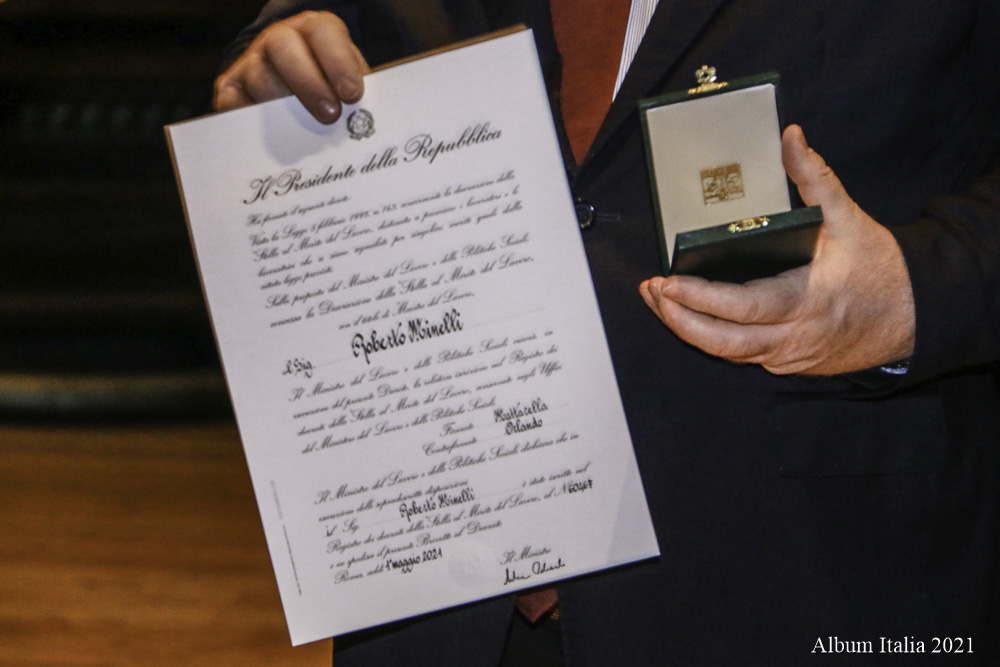 Il Presidente della Repubblica
Ha firmato il seguente decreto:
Vista la Legge 5 febbraio 1992, n. 143, concernente la decorazione della
Stella al Merito del Lavoro, destinata a premiare i lavoratori e le
lavoratrici che si siano segnalati per singolari meriti quali dalla
citata legge previsti.
Sulla proposta del Ministro del Lavoro e delle Politiche Sociali
concessa la Decorazione della Stella al Merito del Lavoro,
con il titolo di Maestro del Lavoro,
al Sig. Roberto Minelli
Il Ministro del Lavoro e delle Politiche Sociali curerà, in
esecuzione del presente Decreto, la relativa iscrizione nel Registro dei
decorati della Stella al Merito del Lavoro, conservato negli Uffici
del Ministero del Lavoro e delle Politiche Sociali.
Firmato Mattarella
Controfirmato Orlando
Il Ministro del Lavoro e delle Politiche Sociali dichiara che in
esecuzione delle sopradescritte disposizioni
il Sig. Roberto Minelli è stato iscritto nel
Registro dei decorati della Stella al Merito del Lavoro, al N° 60467
e ne spedisce il presente Brevetto al Decorato
Roma, addì 1° maggio 2021
Il Ministro
Album Italia 2021